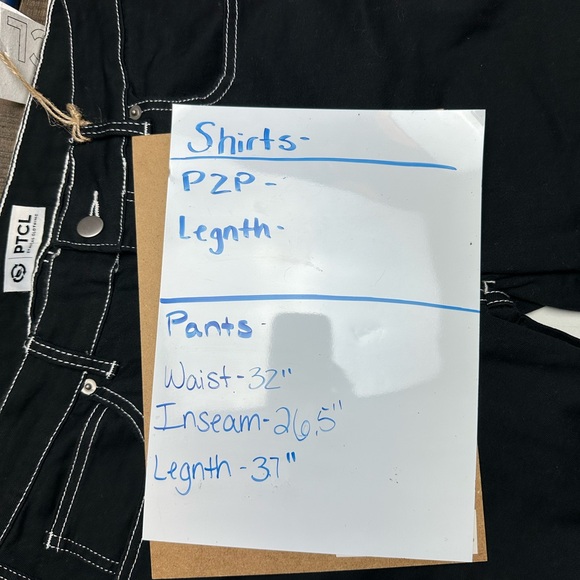 Shirts-
P2P-
Legnth-
Pants-
Waist-32"
Inseam-26.5"
Legnth-37"
PTCL